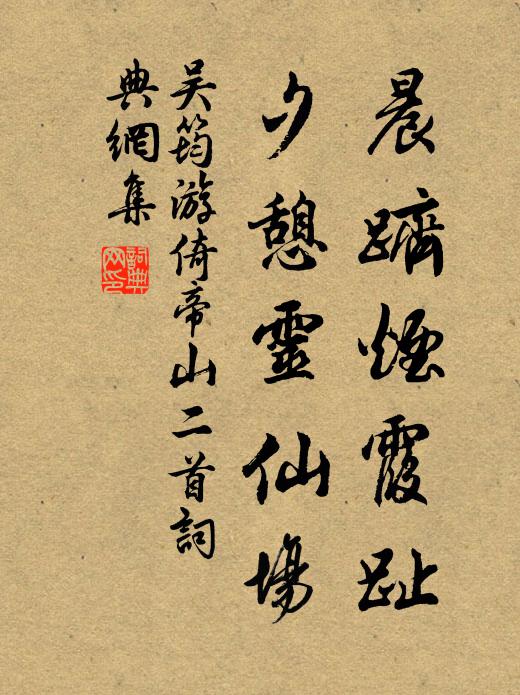 晨躋煙霞趾
夕憩靈仙場
吴筠游倚帝山二首詞
典網集
詞典
网印